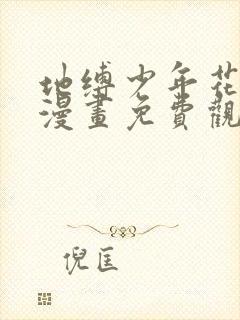 地缚少年花
漫畫免費觀
倪匡